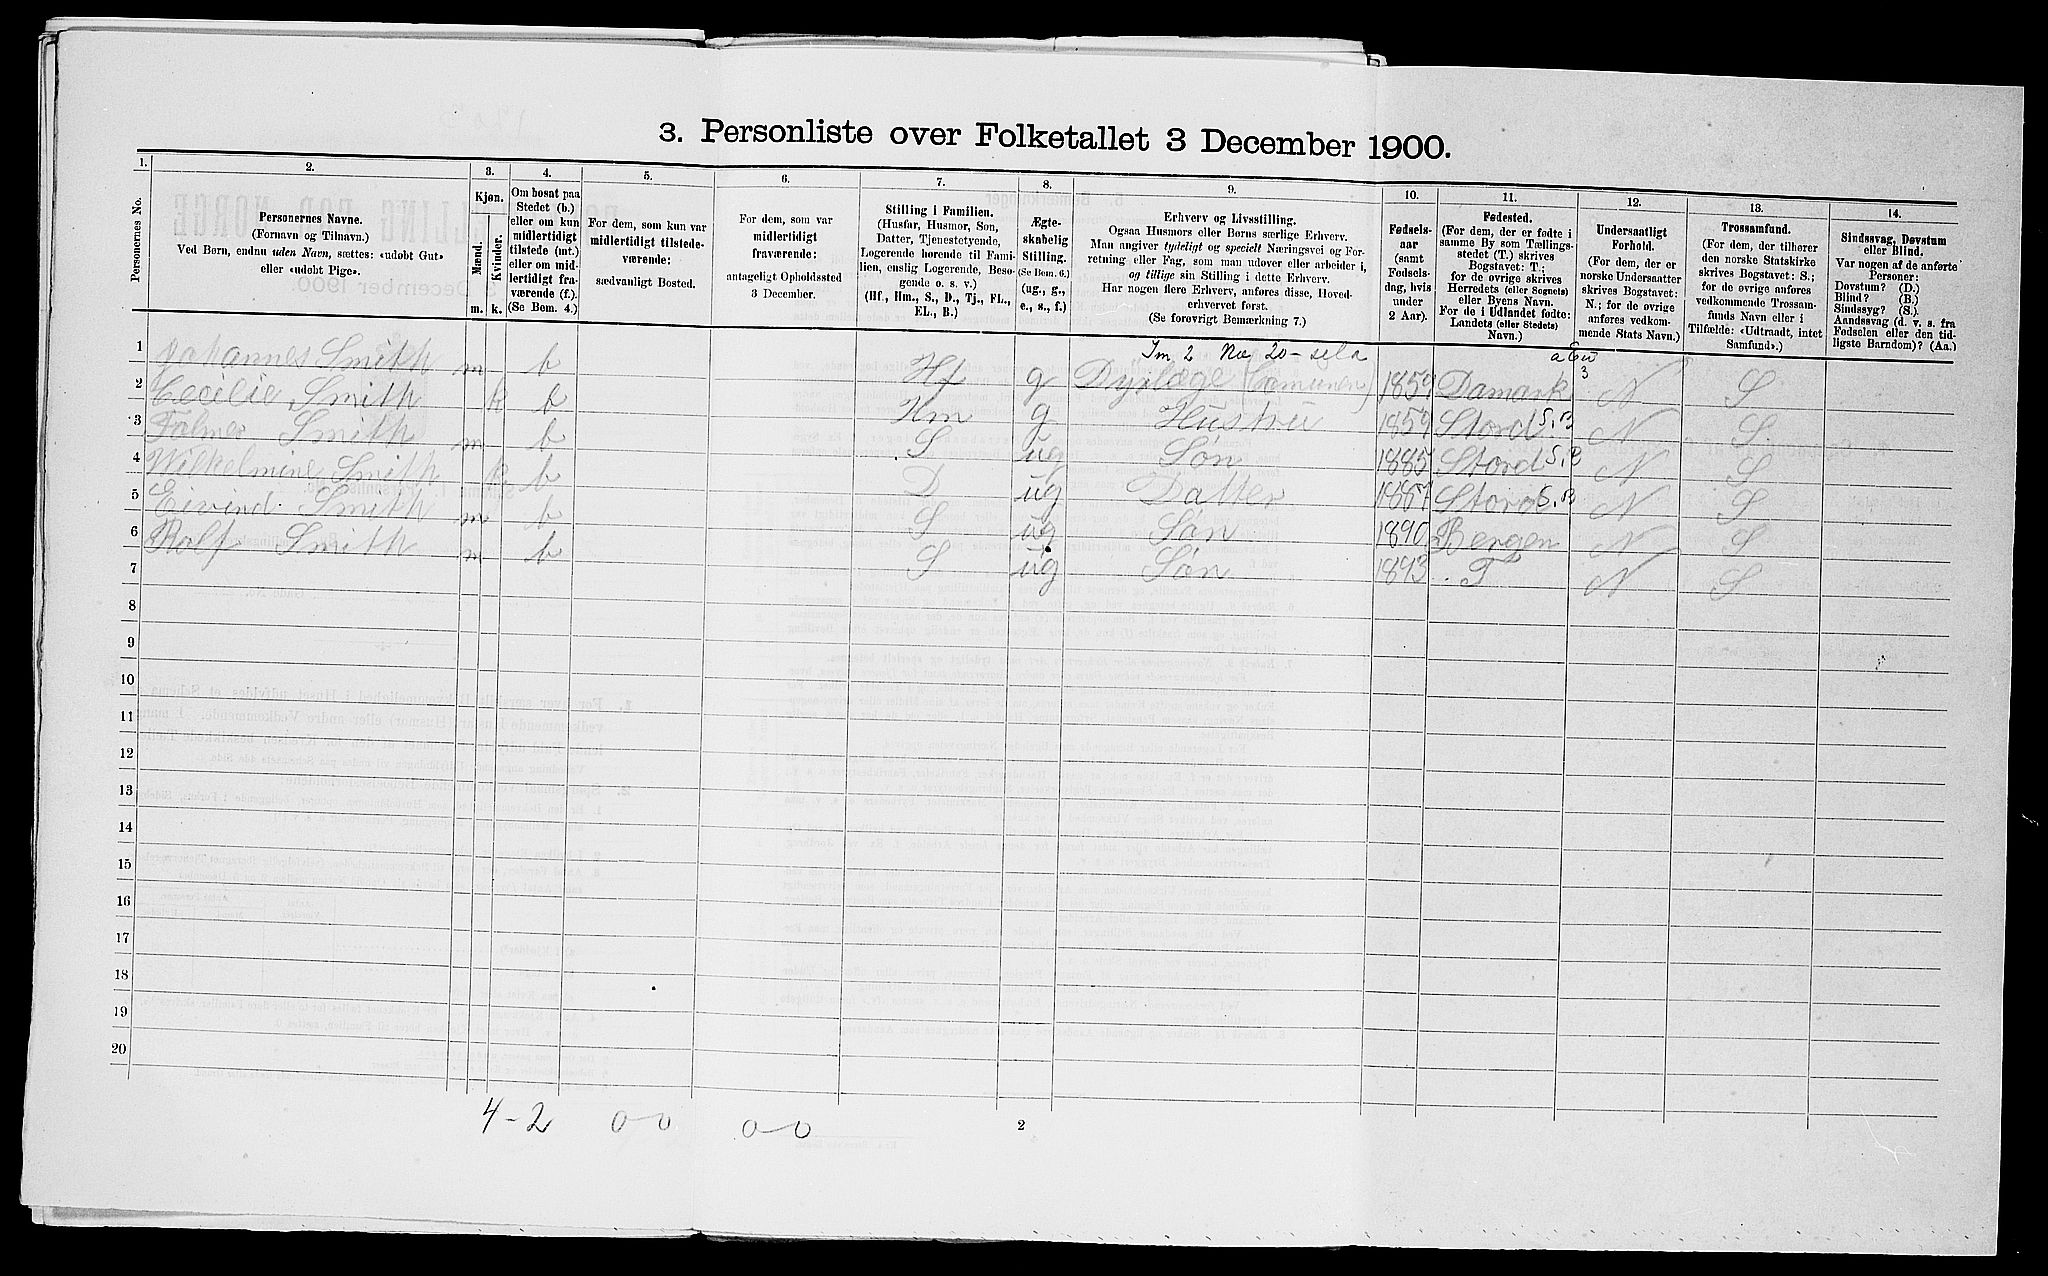 3. Personliste over Folketallet 3 December 1900.
1. 2. 3. 4. 5. 6. 7. 8. 9. 10. 11. 12. 13. 14.
Personernes No.
Personernes Navne.
(Fornavn og Tilnavn.)
Ved Børn, endnu uden Navn, sættes: «udøbt Gut»
eller «udøbt Pige».
Kjøn.
Mænd.
Kvinder.
m. k.
Om bosat paa
Stedet (b.)
eller om kun
midlertidigt
tilstede (mt.)
eller om mid-
lertidigt fra-
værende (f.).
(Se Bem. 4.)
For dem, som kun var
midlertidigt tilstede-
værende:
sædvanligt Bosted.
For dem, som var
midlertidigt
fraværende:
antageligt Opholdssted
3 December.
Stilling i Familien.
(Husfar, Husmor, Søn,
Datter, Tjenestetyende,
Logerende hørende til Fami-
lien, enslig Logerende, Besø-
gende o. s. v.)
(Hf., Hm., S., D., Tj., FL.,
EL., B.)
Ægte-
skabelig
Stilling.
(Se Bem. 6.)
(ug., g.,
e., s., f.)
Erhverv og Livsstilling.
Ogsaa Husmors eller Børns særlige Erhverv.
Man angiver tydeligt og specielt Næringsvei og For-
retning eller Fag, som man udøver eller arbeider i,
og tillige sin Stilling i dette Erhverv.
Har nogen flere Erhverv, anføres disse, Hoved-
erhvervet først.
(Se forøvrigt Bemærkning 7.)
Fødsels-
aar
(samt
Fødsels-
dag, hvis
under
2 Aar).
Fødested.
(For dem, der er fødte i
samme By som Tællings-
stedet (T.) skrives
Bogstavet: T;
for de øvrige skrives
Herredets (eller Sognets)
eller Byens Navn.
For de i Udlandet fødte:
Landets (eller Stedets)
Navn.)
Undersaatligt
Forhold.
(For dem, der er
norske Undersaatter
skrives Bogstavet:
N.; for de øvrige
anføres vedkom-
mende Stats Navn.)
Trossamfund.
(For dem, der tilhører
den norske Statskirke
skrives Bogstavet: S.;
for de øvrige anføres
vedkommende Trossam-
funds Navn eller i
Tilfælde: «Udtraadt, intet
Samfund».)
Sindssvag, Døvstum
eller Blind.
Var nogen af de anførte
Personer:
Døvstum? (D.)
Blind? (B.)
Sindssyg? (S.)
Aandssvag (d. v. s. fra
Fødselen eller den tid-
ligste Barndom)? (Aa.)
1 Johannes Smith m b Hf g Dyrlæge (Comunen) 1859 Damark N S
2 Cecilie Smith k b Hm g Hustru 1859 Stord S.B N S
3 Falmer Smith m b S ug Søn 1885 Stord S.B N S
4 Wilhelmine Smith k b D ug Datter 1887 Stord S.B N S
5 Eivind Smith m b S ug Søn 1890 Bergen N S
6 Rolf Smith m b S ug Søn 1893 T N S
7
8
9
10
11
12
13
14
15
16
17
18
19
20
4-2 0 0 0 0
2